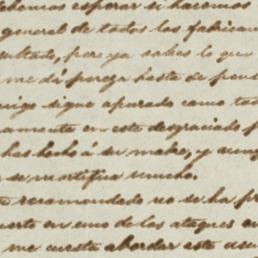 debemos esperar si hacemos
general de todos los fabrican
sultado, pero ya sabes lo que
me dá pereza hasta de pens
migo sigue apurado como tod
amente en este desgraciado p
has hecho á su madre, y aunq
se mortifica mucho.
recomendado no se ha pr
uerto en uno de los ataques en
me cuesta abordar este asun